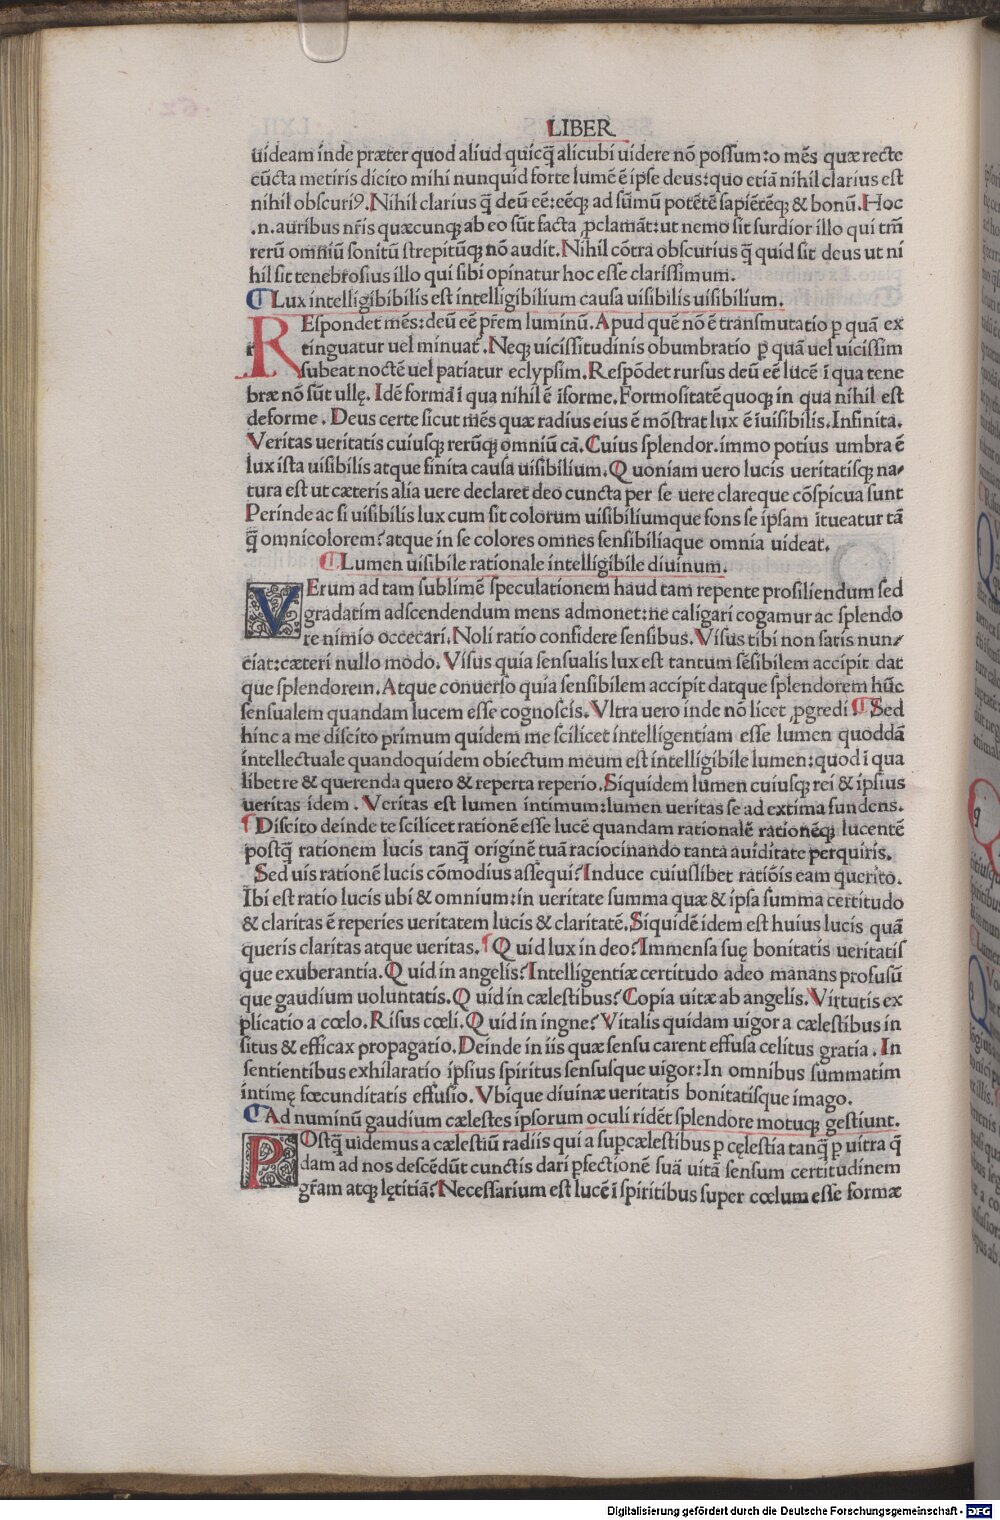 LIBER
uideam inde præter quod aliud quicq̃ alicubi uidere nõ possum:o mẽs quæ recte
cũcta metiris dicito mihi nunquid forte lumẽ ẽ ipse deus:quo etiã nihil clarius est
nihil obscuriꝰ. Nihil clarius q̃ deũ eẽ:eẽqꝫ ad sũmũ potẽtẽ sapiẽtẽqꝫ & bonũ. Hoc
.n. auribus nr̃is quæcunqꝫ ab eo sũt facta ꝓclamãt:ut nemo sit surdior illo qui tm̃
rerũ omniũ sonitũ strepitũqꝫ nõ audit. Nihil cõtra obscurius q̃ quid sit deus ut ni
hil sit tenebrosius illo qui sibi opinatur hoc esse clarissimum.
¶ Lux intelligibibilis est intelligibilium causa uisibilis uisibilium.
REspondet mẽs:deũ eẽ pr̃em luminũ. Apud quẽ nõ ẽ transmutatio ꝑ quã ex
tinguatur uel minuat̃. Neqꝫ uicissitudinis obumbratio ꝑ quã uel uicissim
subeat noctẽ uel patiatur eclypsim. Respõdet rursus deũ eẽ lucẽ ĩ qua tene
bræ nõ sũt ullę. Idẽ formã ĩ qua nihil ẽ ĩforme. Formositatẽ quoqꝫ in qua nihil est
deforme. Deus certe sicut mẽs quæ radius eius ẽ mõstrat lux ẽ ĩuisibilis. Infinita.
Veritas ueritatis cuiusqꝫ rerũqꝫ omniũ cã. Cuius splendor. immo potius umbra ẽ
lux ista uisibilis atque finita causa uisibilium. Quoniam uero lucis ueritatisqꝫ na-
tura est ut cæteris alia uere declaret deo cuncta per se uere clareque cõspicua sunt
Perinde ac si uisibilis lux cum sit colorum uisibiliumque fons se ipsam ĩtueatur tã
q̃ omnicolorem? atque in se colores omnes sensibiliaque omnia uideat.
¶ Lumen uisibile rationale intelligibile diuinum.
VErum ad tam sublimẽ speculationem haud tam repente prosiliendum sed
gradatim adscendendum mens admonet:ne caligari cogamur ac splendo
re nimio occecari. Noli ratio confidere sensibus. Visus tibi non satis nun-
ciat:cæteri nullo modo. Visus quia sensualis lux est tantum sẽsibilem accipit dat
que splendorem. Atque conuerso quia sensibilem accipit datque splendorem hũc
sensualem quandam lucem esse cognoscis. Vltra uero inde nõ licet ꝓgredi. ¶ Sed
hinc a me discito primum quidem me scilicet intelligentiam esse lumen quoddã
intellectuale quandoquidem obiectum meum est intelligibile lumen:quod ĩ qua
libet re & querenda quero & reperta reperio. Siquidem lumen cuiusqꝫ rei & ipsius
ueritas idem. Veritas est lumen intimum:lumen ueritas se ad extima fundens.
¶ Discito deinde te scilicet rationẽ esse lucẽ quandam rationalẽ rationẽqꝫ lucentẽ
postq̃ rationem lucis tanq̃ originẽ tuã raciocinando tanta auiditate perquiris.
Sed uis rationẽ lucis cõmodius assequi? Induce cuiuslibet ratiõis eam querito.
Ibi est ratio lucis ubi & omnium:in ueritate summa quæ & ipsa summa certitudo
& claritas ẽ reperies ueritatem lucis & claritatẽ. Siquidẽ idem est huius lucis quã
queris claritas atque ueritas. ¶ Quid lux in deo? Immensa suę bonitatis ueritatis
que exuberantia. Quid in angelis? Intelligentiæ certitudo adeo manans profusũ
que gaudium uoluntatis. Quid in cælestibus? Copia uitæ ab angelis. Virtutis ex
plicatio a cœlo. Risus cœli. Quid in ingne? Vitalis quidam uigor a cælestibus in
situs & efficax propagatio. Deinde in iis quæ sensu carent effusa celitus gratia. In
sentientibus exhilaratio ipsius spiritus sensusque uigor:In omnibus summatim
intimę fœcunditatis effusio. Vbique diuinæ ueritatis bonitatisque imago.
¶ Ad numinũ gaudium cælestes ipsorum oculi ridẽt splendore motuqꝫ gestiunt.
POstq̃ uidemus a cælestiũ radiis qui a suꝑcælestibus ꝑ cęlestia tanq̃ ꝑ uitra q̃
dam ad nos descẽdũt cunctis dari ꝑfectionẽ suã uitã sensum certitudinem
gr̃am atqꝫ lętitiã? Necessarium est lucẽ ĩ spiritibus super cœlum esse formæ
Digitalisierung gefördert durch die Deutsche Forschungsgemeinschaft - DFG